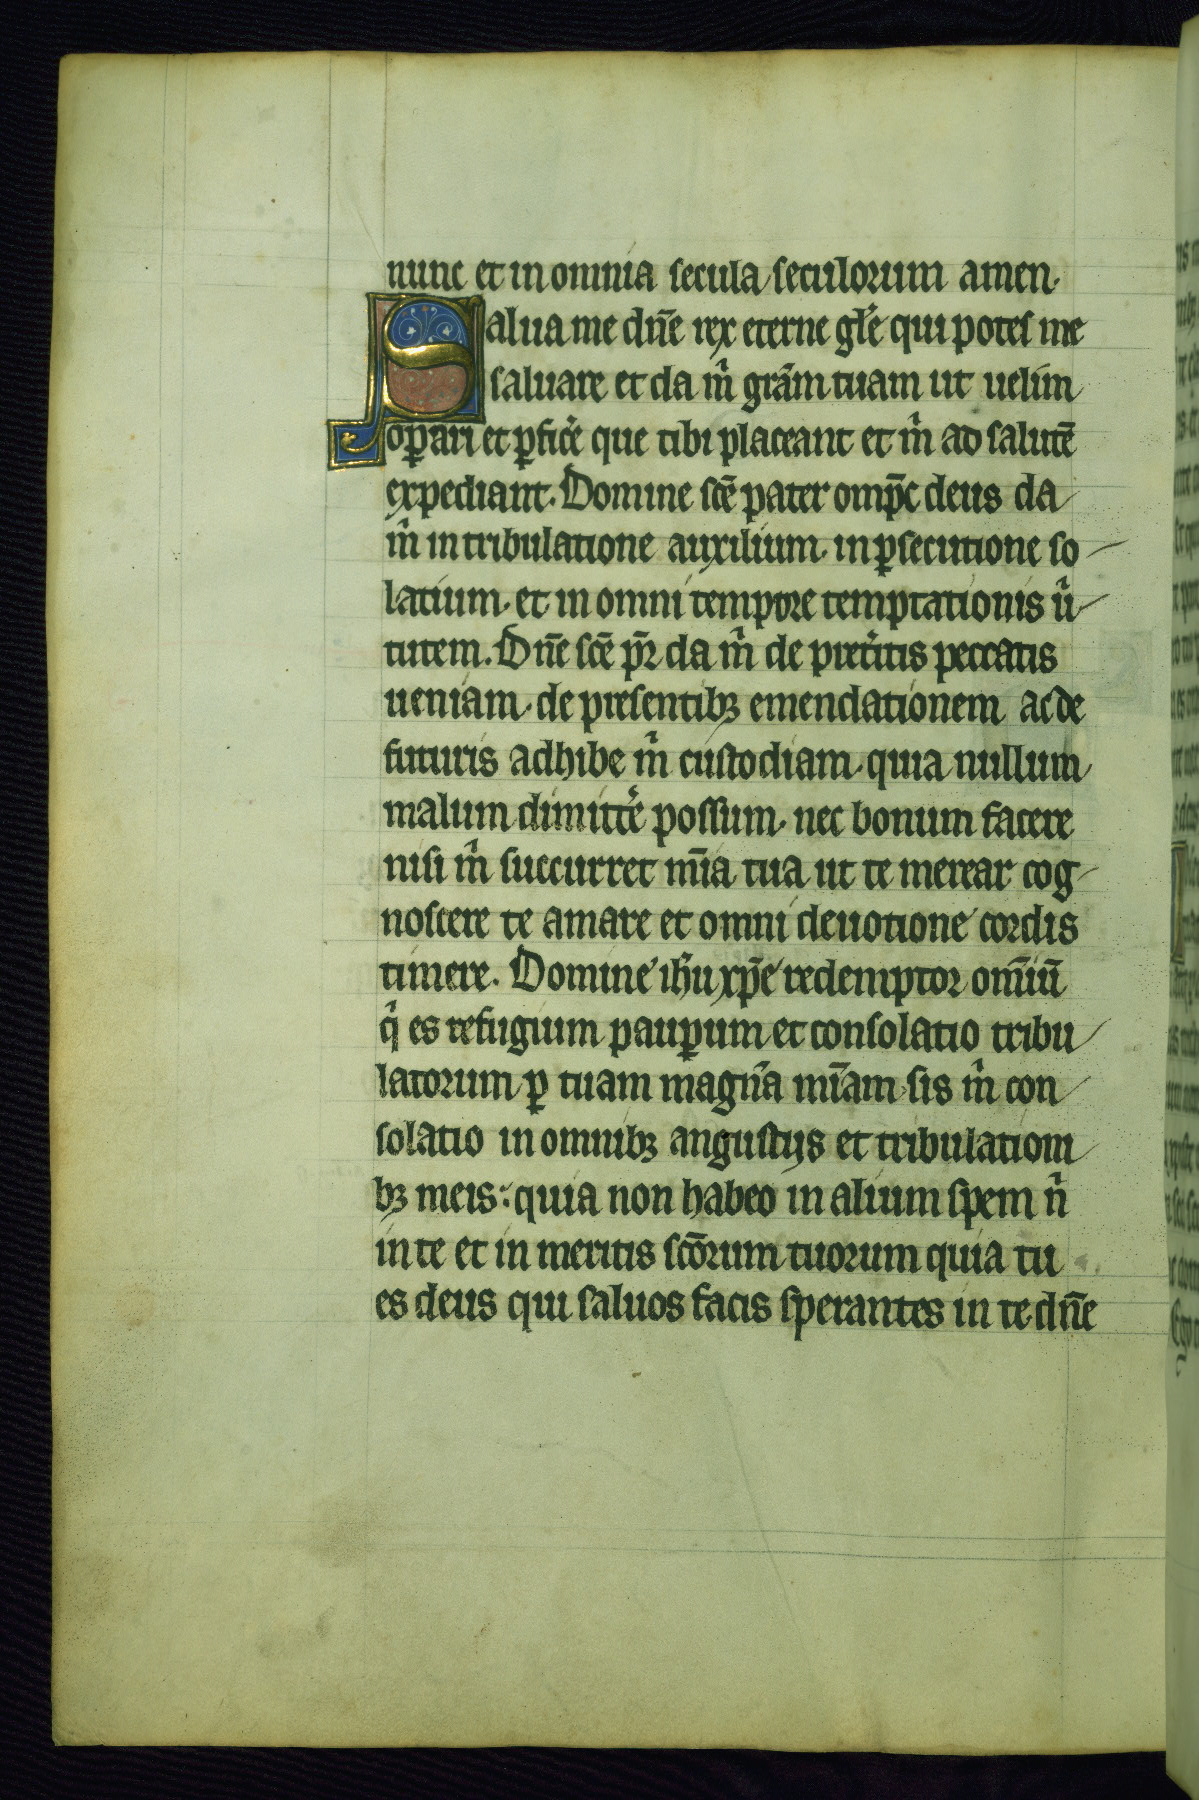 nunc et in omnia secula seculorum amen.
Salua me dn̄e rex eterne gl̄e qui potes me
saluare et da m̄ grām tuam ut uelim
oꝑari et ꝑficē que tibi placeant et m̄ ad salutē
expediant. Domine scē pater omp̄c deus da
m̄ in tribulatione auxilium. in ꝑsecutione so
latium. et in omni tempore temptationis ū
tutem. Dn̄e scē pr̄ da m̄ de pretītis peccatis
ueniam. de presentibꝫ emendationem ac de
futuris adhibe m̄ custodiam. quia nullum
malum dimittē possum. nec bonum facere
nisi m̄ succurret mīa tua ut te merear cog
noscere te amare et omni deuotione cordis
timere. Domine ih̄u xp̄e redemptor omīū
q̄ es refugium pauꝑum et consolatio tribu
latorum ꝑ tuam magnā mīam sis m̄ con
solatio in omnibꝫ angustijs et tribulationi
bꝫ meis: quia non habeo in alium spem n̄
in te et in meritis scōrum tuorum quia tu
es deus qui saluos facis sperantes in te dn̄e